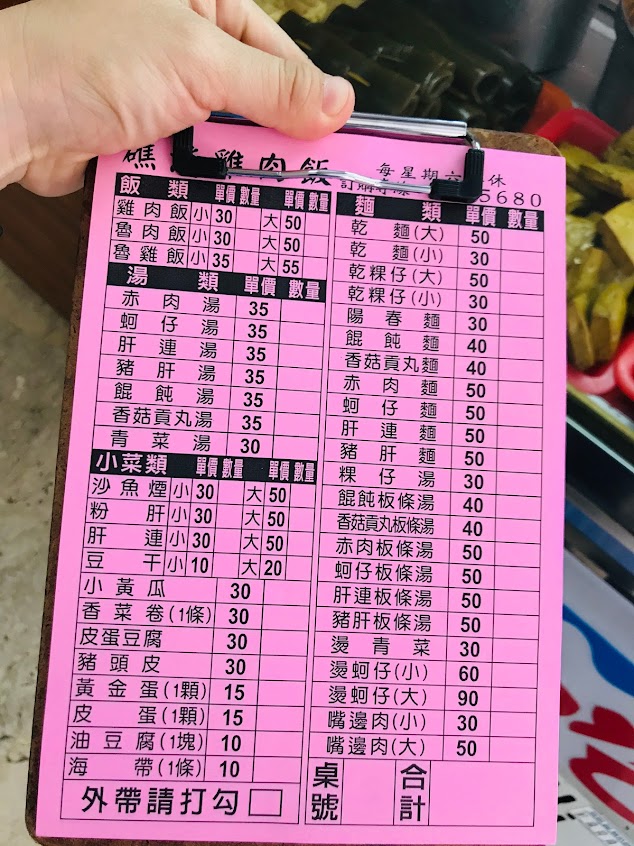 礁 雞肉飯
每星期六 休
訂購專線 5680
飯類 單價 數量 單價 數量
雞肉飯 小 30 大 50
魯肉飯 小 30 大 50
魯雞飯 小 35 大 55
湯類 單價 數量
赤肉湯 35
蚵仔湯 35
肝連湯 35
豬肝湯 35
餛飩湯 35
香菇貢丸湯 35
青菜湯 30
小菜類 單價 數量 單價 數量
沙魚煙 小 30 大 50
粉肝 小 30 大 50
肝連 小 30 大 50
豆干 小 10 大 20
小黃瓜 30
香菜卷(1條) 30
皮蛋豆腐 30
豬頭皮 30
黃金蛋(1顆) 15
皮蛋(1顆) 15
油豆腐(1塊) 10
海帶(1條) 10
外帶請打勾 □
麵類 單價 數量
乾麵(大) 50
乾麵(小) 30
乾粿仔(大) 50
乾粿仔(小) 30
陽春麵 30
餛飩麵 40
香菇貢丸麵 40
赤肉麵 50
蚵仔麵 50
肝連麵 50
豬肝麵 50
粿仔湯 30
餛飩板條湯 40
香菇貢丸板條湯 40
赤肉板條湯 50
蚵仔板條湯 50
肝連板條湯 50
豬肝板條湯 50
燙青菜 30
燙蚵仔(小) 60
燙蚵仔(大) 90
嘴邊肉(小) 30
嘴邊肉(大) 50
桌號 合計